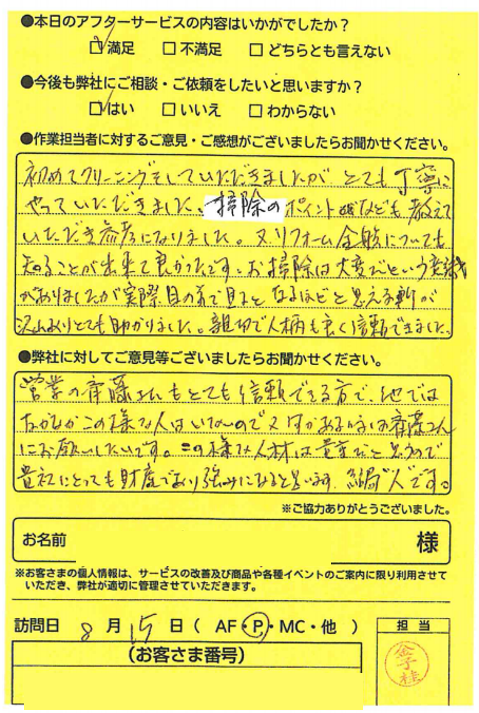 ●本日のアフターサービスの内容はいかがでしたか？
☑満足 □不満足 □どちらとも言えない
●今後も弊社にご相談・ご依頼をしたいと思いますか？
☑はい □いいえ □わからない
●作業担当者に対するご意見・ご感想がございましたらお聞かせください。
初めてクリーニングをしていただきましたが、とても丁寧に
やっていただきました。掃除のポイントなども教えて
いただき参考になりました。又、リフォーム全般についても
知ることが出来て良かったです。お掃除は大変だという意識
がありましたが実際目の前で見るとなるほどと思える事が
沢山ありとても助かりました。親切で人柄も良く信頼できました。
●弊社に対してご意見等ございましたらお聞かせください。
営業の斉藤さんもとても信頼できる方で、他では
なかなかこの様な人はいないので又何かあるときは斉藤さん
にお願いしたいです。この様な人材は貴重だと思うので
貴社にとっても財産であり強みになると思います。人です。
※ご協力ありがとうございました。
お名前 様
※お客さまの個人情報は、サービスの改善及び商品や各種イベントのご案内に限り利用させて
いただき、弊社が適切に管理させていただきます。
訪問日 8月15日（ AF・P・MC・他 ） 担当
（お客さま番号） 金子桂